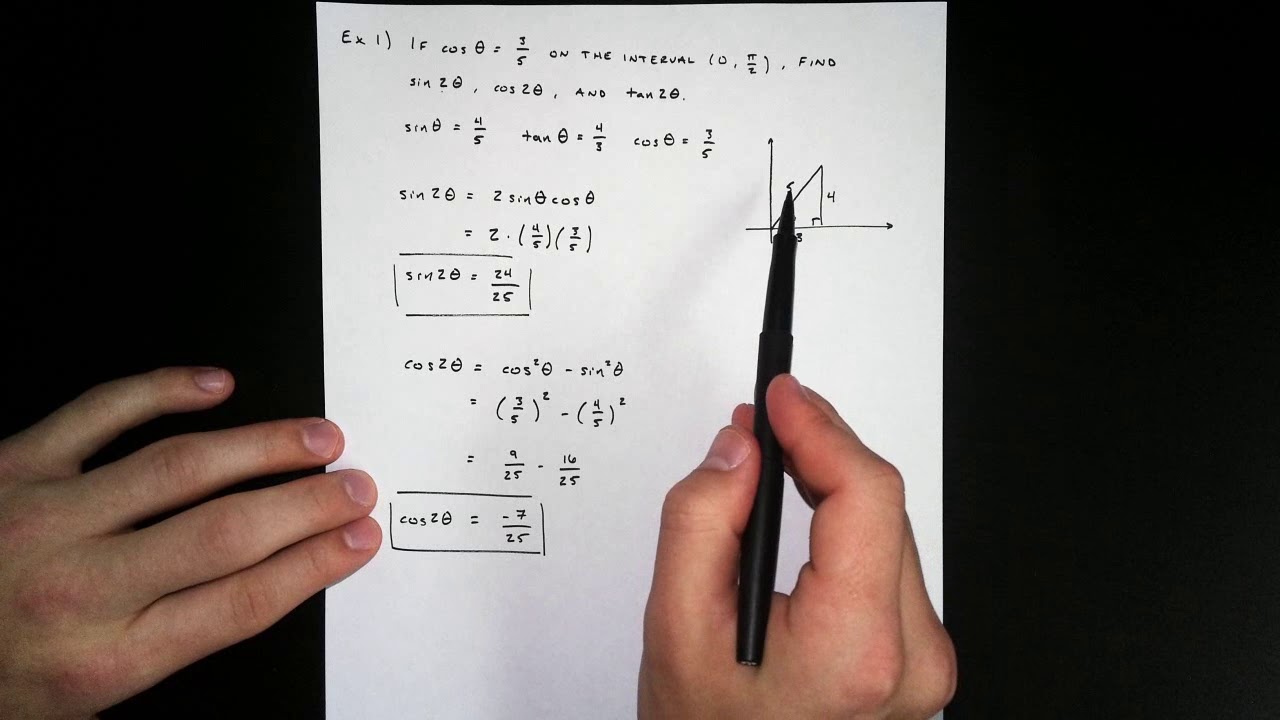 Ex 1) IF cos θ = 3/5 ON THE INTERVAL (0, π/2), FIND
sin 2θ, cos 2θ, AND tan 2θ.
sin θ = 4/5 tan θ = 4/3 cos θ = 3/5
5
4
3
sin 2θ = 2 sin θ cos θ
= 2 · (4/5)(3/5)
sin 2θ = 24/25
cos 2θ = cos²θ - sin²θ
= (3/5)² - (4/5)²
= 9/25 - 16/25
cos 2θ = -7/25